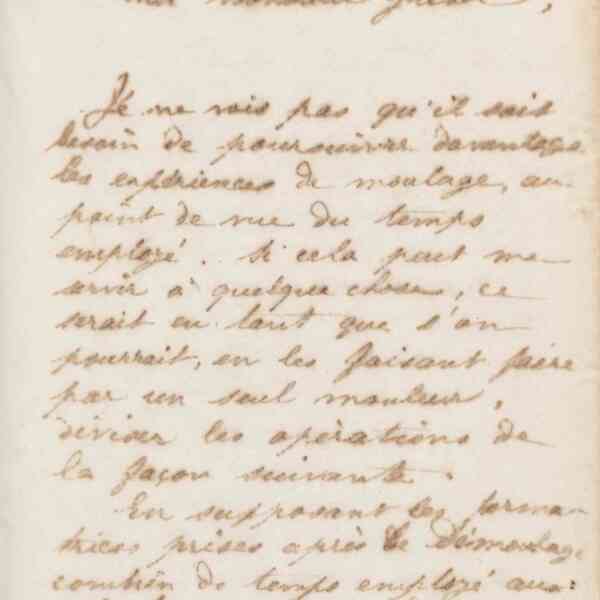 Je ne vois pas qu'il soit
besoin de poursuivre davantage
les expériences de moulage, au
point de vue du temps
employé. Si cela peut me
servir à quelque chose, ce
serait en tant que l'on
pourrait, en les faisant faire
par un seul mouleur,
diviser les opérations de
la façon suivante.
En supposant les forma
trices prises après le démoulage
combien de temps employé aux: